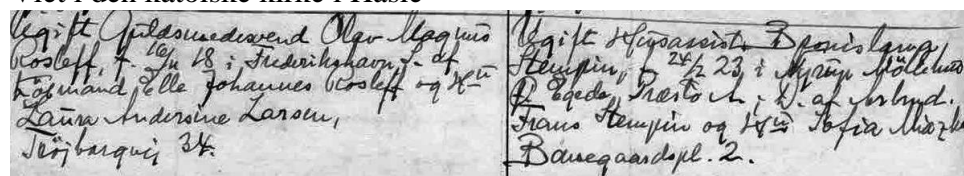 Viet i den katolske kirke i
Ugift Guldsmedesvend Olav Magnus
Rosleff, f. 16/11 18 i Frederikshavn S. af
Købmand Pelle Johannes Rosleff og Hu
Laura Andersine Larsen,
34.
Ugift Husassist. Bronislava
Stempin, f. 24/2 23, i
Egede, Præstø A., D. af Arbmd.
Frans Stempin og Hu Sofia
Banegaardspl. 2.